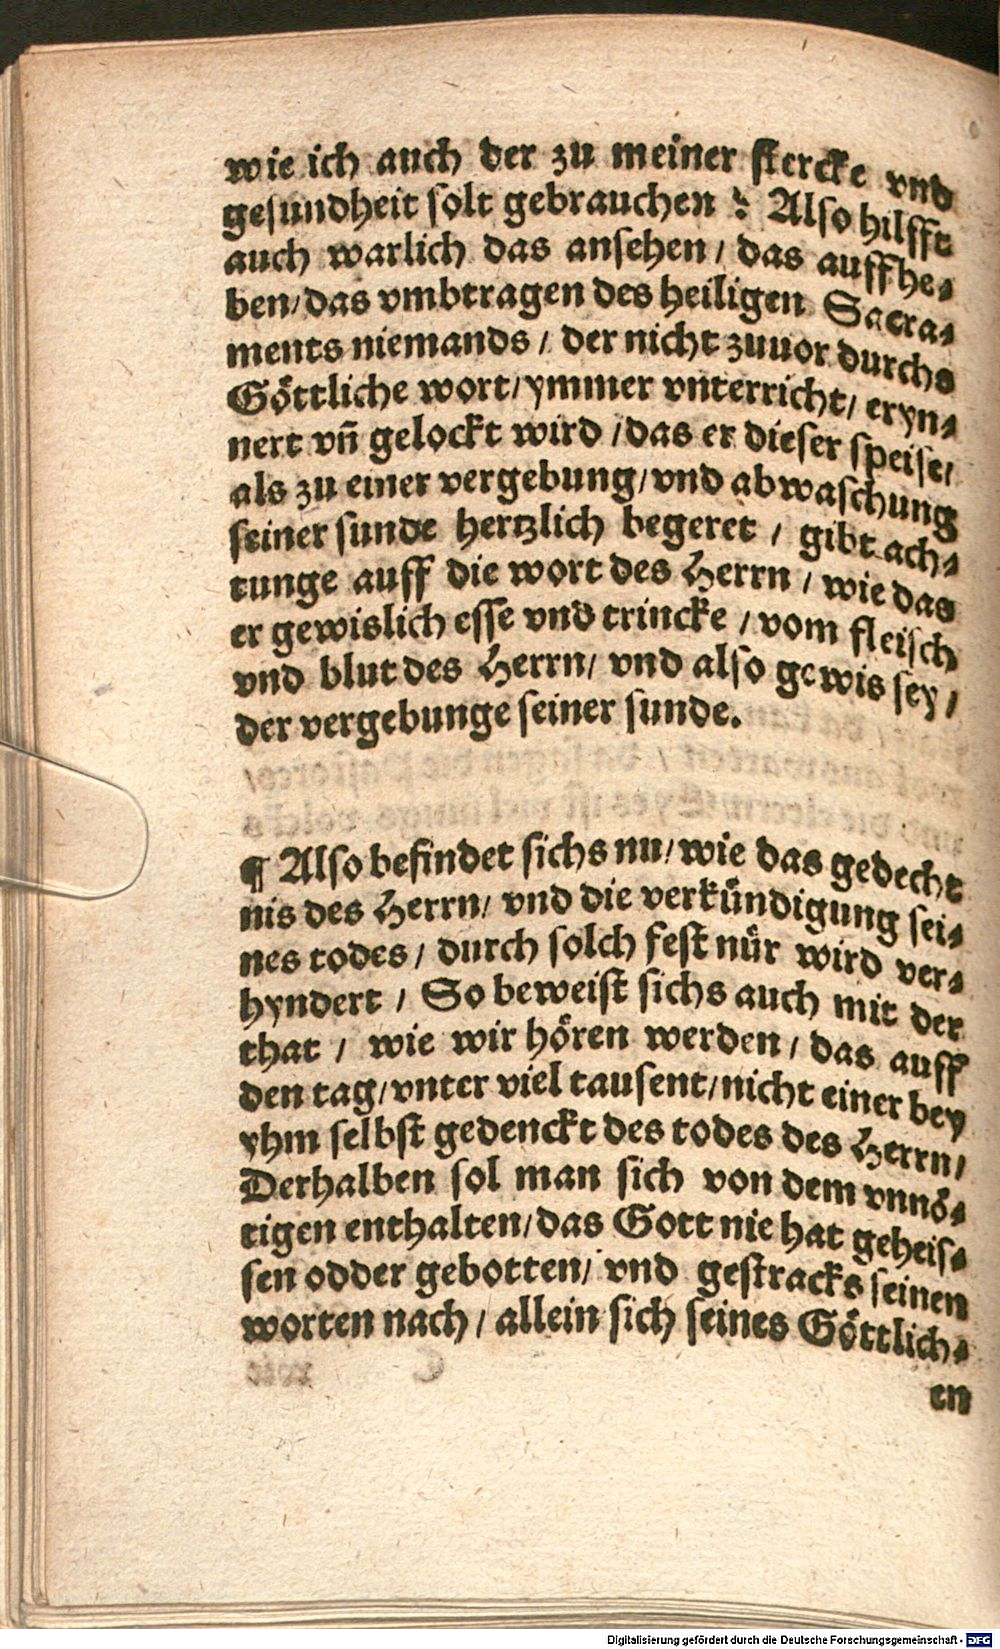 wie ich auch der zu meiner stercke vnd
gesundheit solt gebrauchen ? Also hilfft
auch warlich das ansehen / das auffhe⸗
ben / das vmbtragen des heiligen Sacra⸗
ments niemands / der nicht zuuor durchs
Göttliche wort / ymmer vnterricht / eryn⸗
nert vn̄ gelockt wird / das er dieser speise /
als zu einer vergebung / vnd abwaschung
seiner sunde hertzlich begeret / gibt ach⸗
tunge auff die wort des Herrn / wie das
er gewislich esse vnd trincke / vom fleisch
vnd blut des Herrn / vnd also gewis sey /
der vergebunge seiner sunde.
¶ Also befindet sichs nu / wie das gedecht
nis des Herrn / vnd die verkündigung sei⸗
nes todes / durch solch fest nür wird ver⸗
hyndert / So beweist sichs auch mit der
that / wie wir hören werden / das auff
den tag / vnter viel tausent / nicht einer bey
yhm selbst gedenckt des todes des Herrn /
Derhalben sol man sich von dem vnnö⸗
tigen enthalten / das Gott nie hat geheis⸗
sen odder gebotten / vnd gestracks seinen
worten nach / allein sich seines Göttlich⸗
en
Digitalisierung gefördert durch die Deutsche Forschungsgemeinschaft - DFG